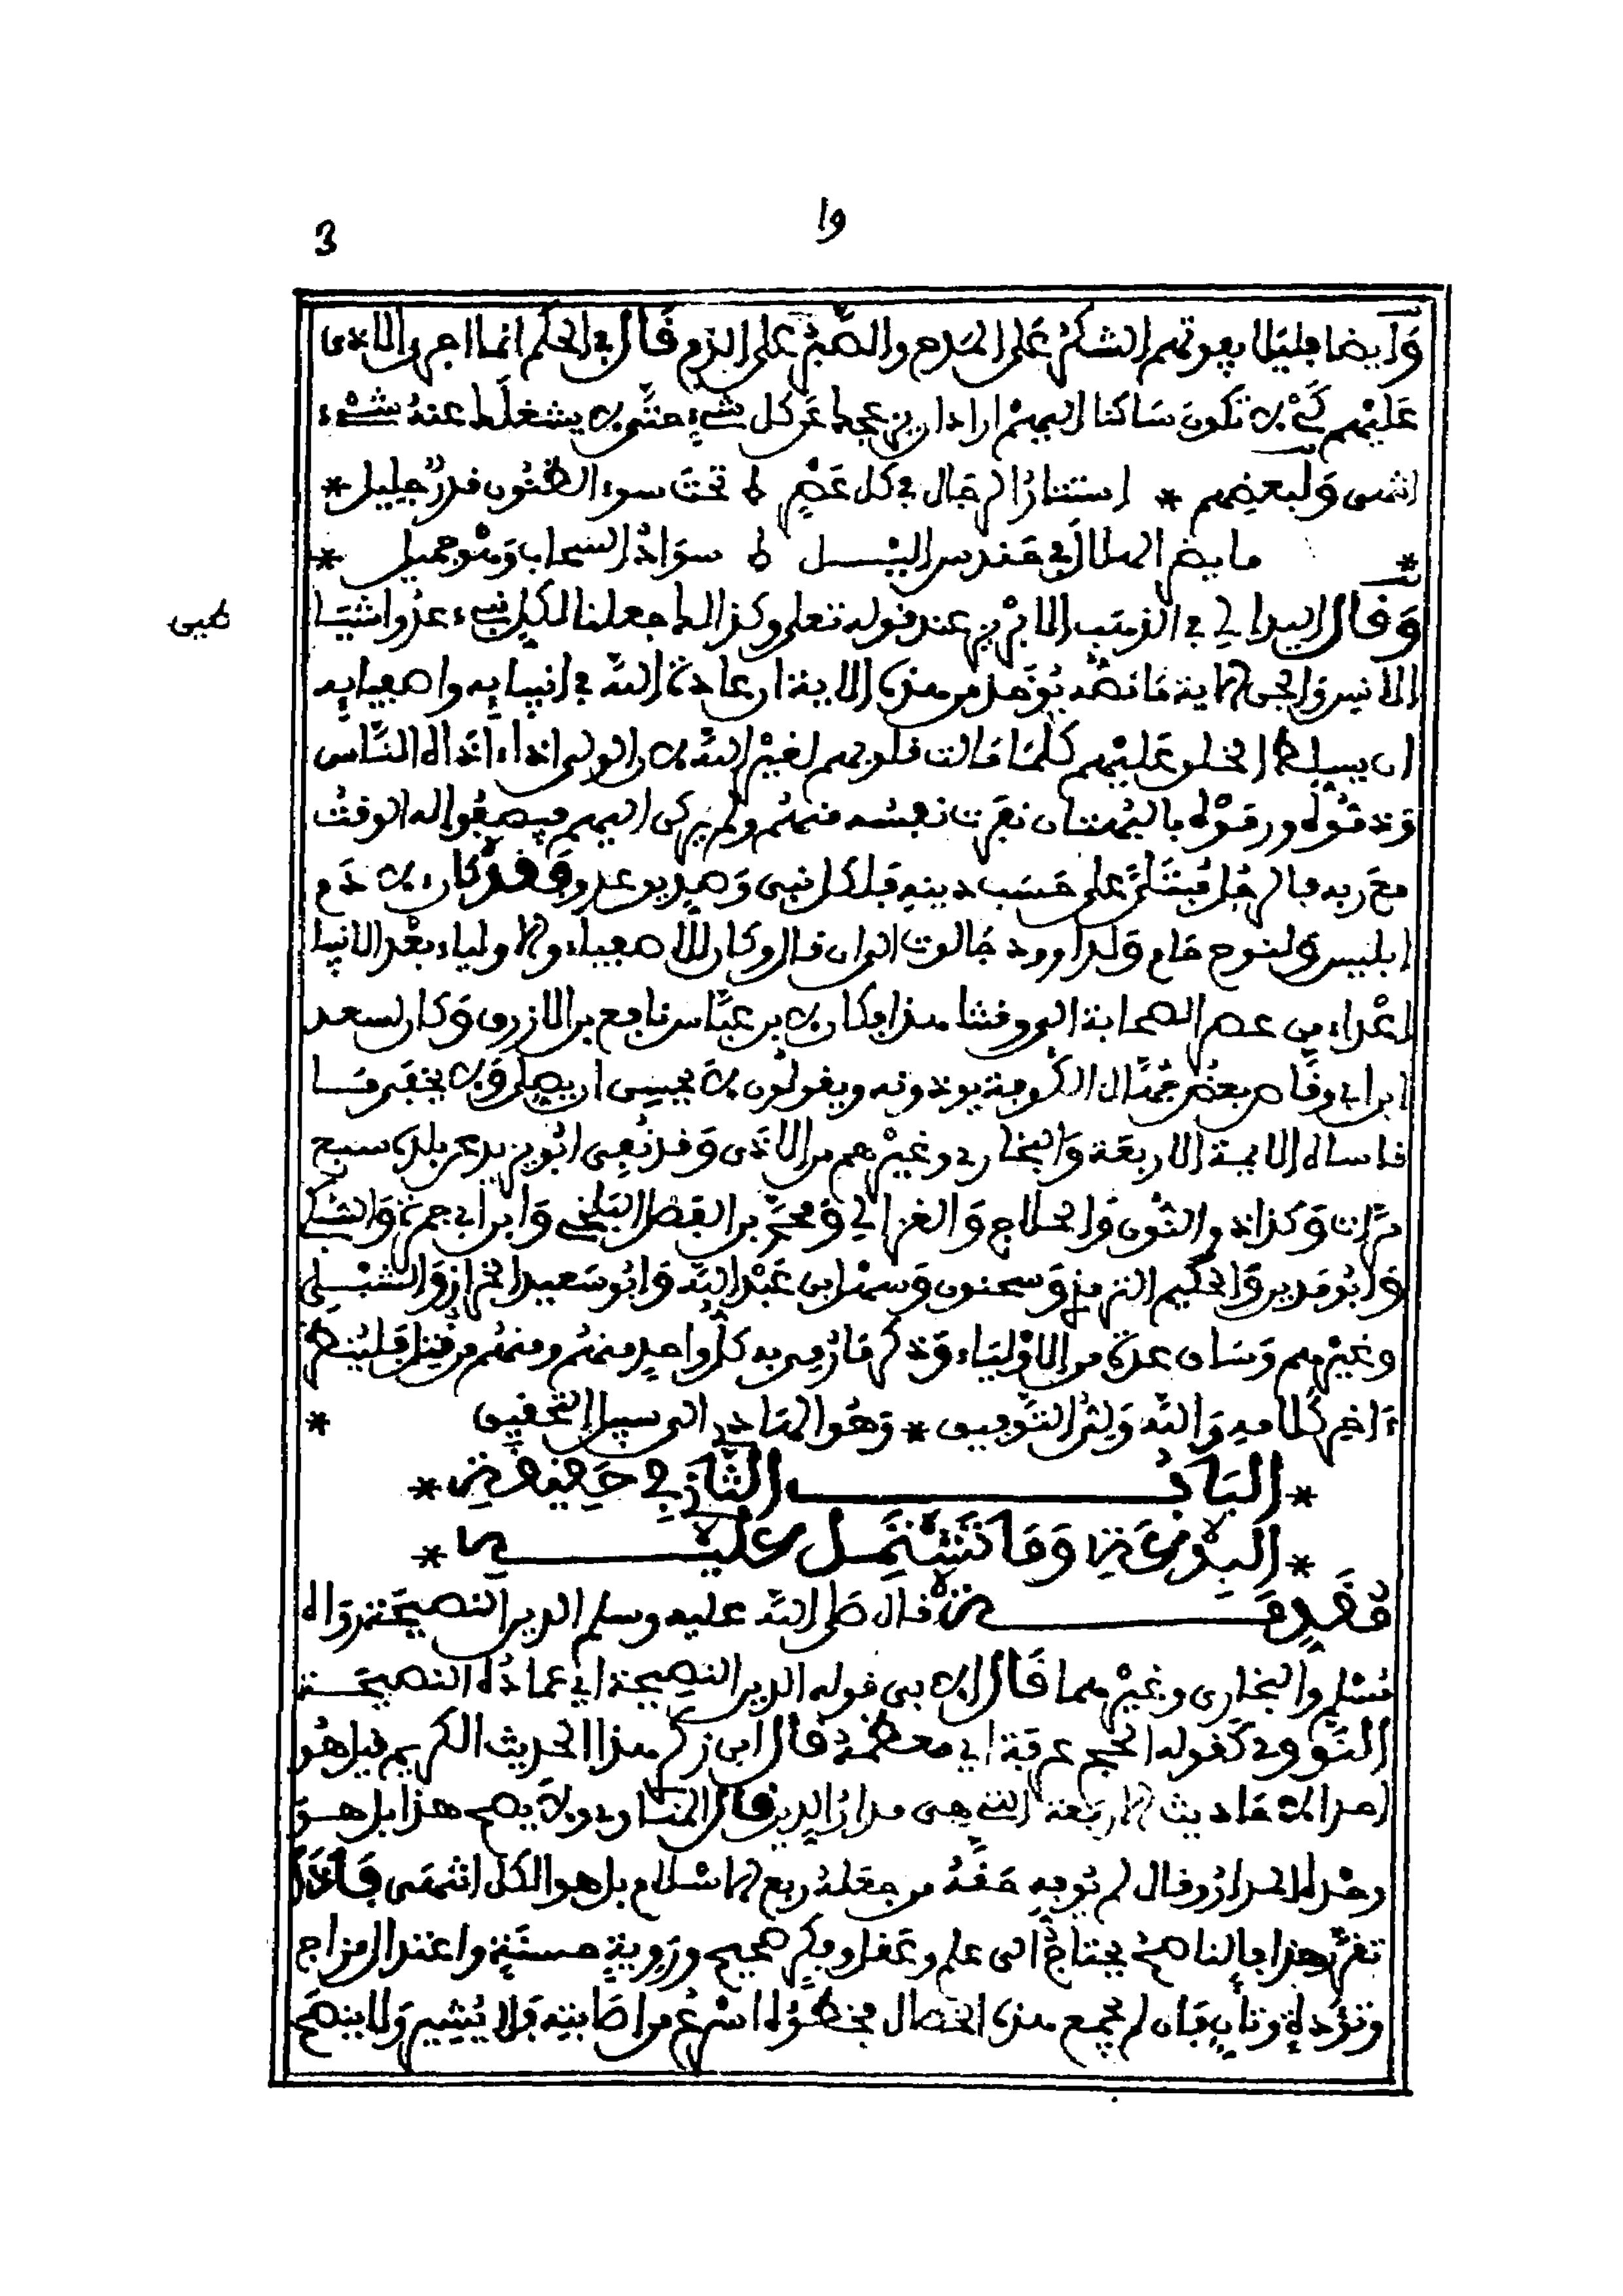 19
3
وأيضا فليلا يفوتهم الشكر على المدح والصبر على الذم قال في الحكم انما اجرى الاذى
عليهم كي لا تكون ساكنا اليهم اراد ان يزعجك عن كل شيء حتى لا يشغلك عنه شيء
انتهى ولبعضهم * استتار الرجال في كل عصر تحت سوء الظنون قدر جليل *
* ما يضر الهلال في حندس اليل سواد السحاب وهو جميل *
وقال اليدالي في الذهب الابريز عند قوله تعلى وكذالك جعلنا لكل نبيء عدوا شيا
الانس والجن الاية ما نصه يؤخذ من هذه الاية ان عادة الله في انبيايه واصفيايه
ان يسلط الخلق عليهم كلما مالت قلوبهم لغير الله لان الولي اذا اذاه الناس
وذموه ورموه بالبهتان نفرت نفسه منهم ولم يركن اليهم فيصفوا له الوقت
مع ربه فالرجل مبتلى على حسب دينه فلكل نبي وصديق عدو وقد كان لادم
ابليس ولنوح حام ولداوود جالوت الى ان قال وكان للاصفياء والاولياء بعد الانبيا
اعداء من عصر الصحابة الى وقتنا هذا فكان لابن عباس نافع بن الازرق وكان لسعد
ابن ابي وقاص بعض جهال الكوفة يوذونه ويقولون لا يحسن ان يصلي ولا يخفى ما
قاساه الايمة الاربعة والبخاري وغيرهم من الاذى وقد نفي ابويزيد عن بلده سبع
مرات وكذا ذو النون والحلاج والغزالي ومحمد بن الفضل البلخي وابن ابي جمرة
وابو مدين والحكيم الترمذي وسحنون وسهل ابن عبد الله وابو سعيد الخراز والشبلي
وغيرهم وساق عدة من الاولياء وذكر ما رمي به كل واحد منهم ومنهم من قتل فلينظر
ءاخر كلامه والله ولي التوفيق * وهو الهادي الى سبيل التحقيق *
* الباب الثاني في حقيقة *
* البدعة وما تشتمل عليه *
مقدمة قال صلى الله عليه وسلم الدين النصيحة رواه
مسلم والبخاري وغيرهما قال الابي قوله الدين النصيحة اي عماده النصيحة
النووي كقوله الحج عرفة اي معظمه قال ابن زكري هذا الحديث الكريم قيل هو
احد الاحاديث الاربعة التي هي مدار الدين قال المناوي ولا يصح هذا بل هو
وحده المدار وقال لم يوفه حقه من جعله ربع الاسلام بل هو الكل انتهى فاذا
تقرر هذا فالناصح يحتاج الى علم وعقل وفكر صحيح وروية حسنة واعتدال مزاج
وتؤدة وتان فان لم تجمع هذه الخصال فخطؤه اسرع من اصابته فلا يشير ولا ينصح